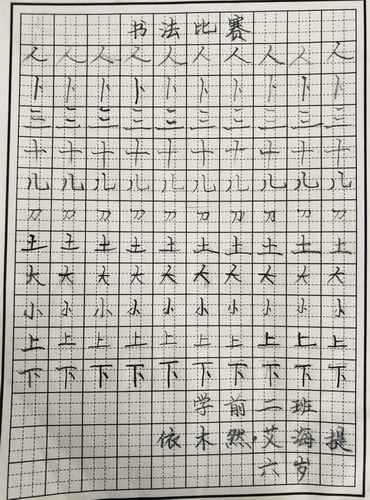 书法比赛
人人人人人人人人人人
卜卜卜卜卜卜卜卜卜卜
三三三三三三三三三三
十十十十十十十十十十
儿儿儿儿儿儿儿儿儿儿
刀刀刀刀刀刀刀刀刀刀
土土土土土土土土土土
大大大大大大大大大大
小小小小小小小小小小
上上上上上上上上上上
下下下下下下下下下下
学前二班
依木然·艾海提
六岁